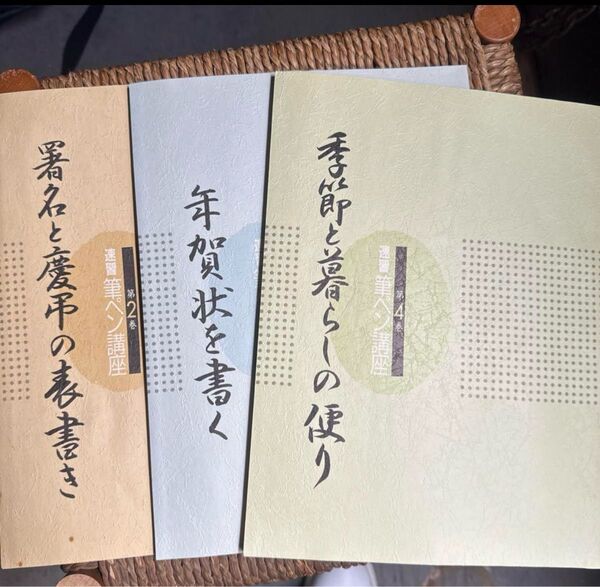 署名と慶弔の表書き
速習 筆ペン講座
第2巻
年賀状を書く
季節と暮らしの便り
速習 筆ペン講座
第4巻